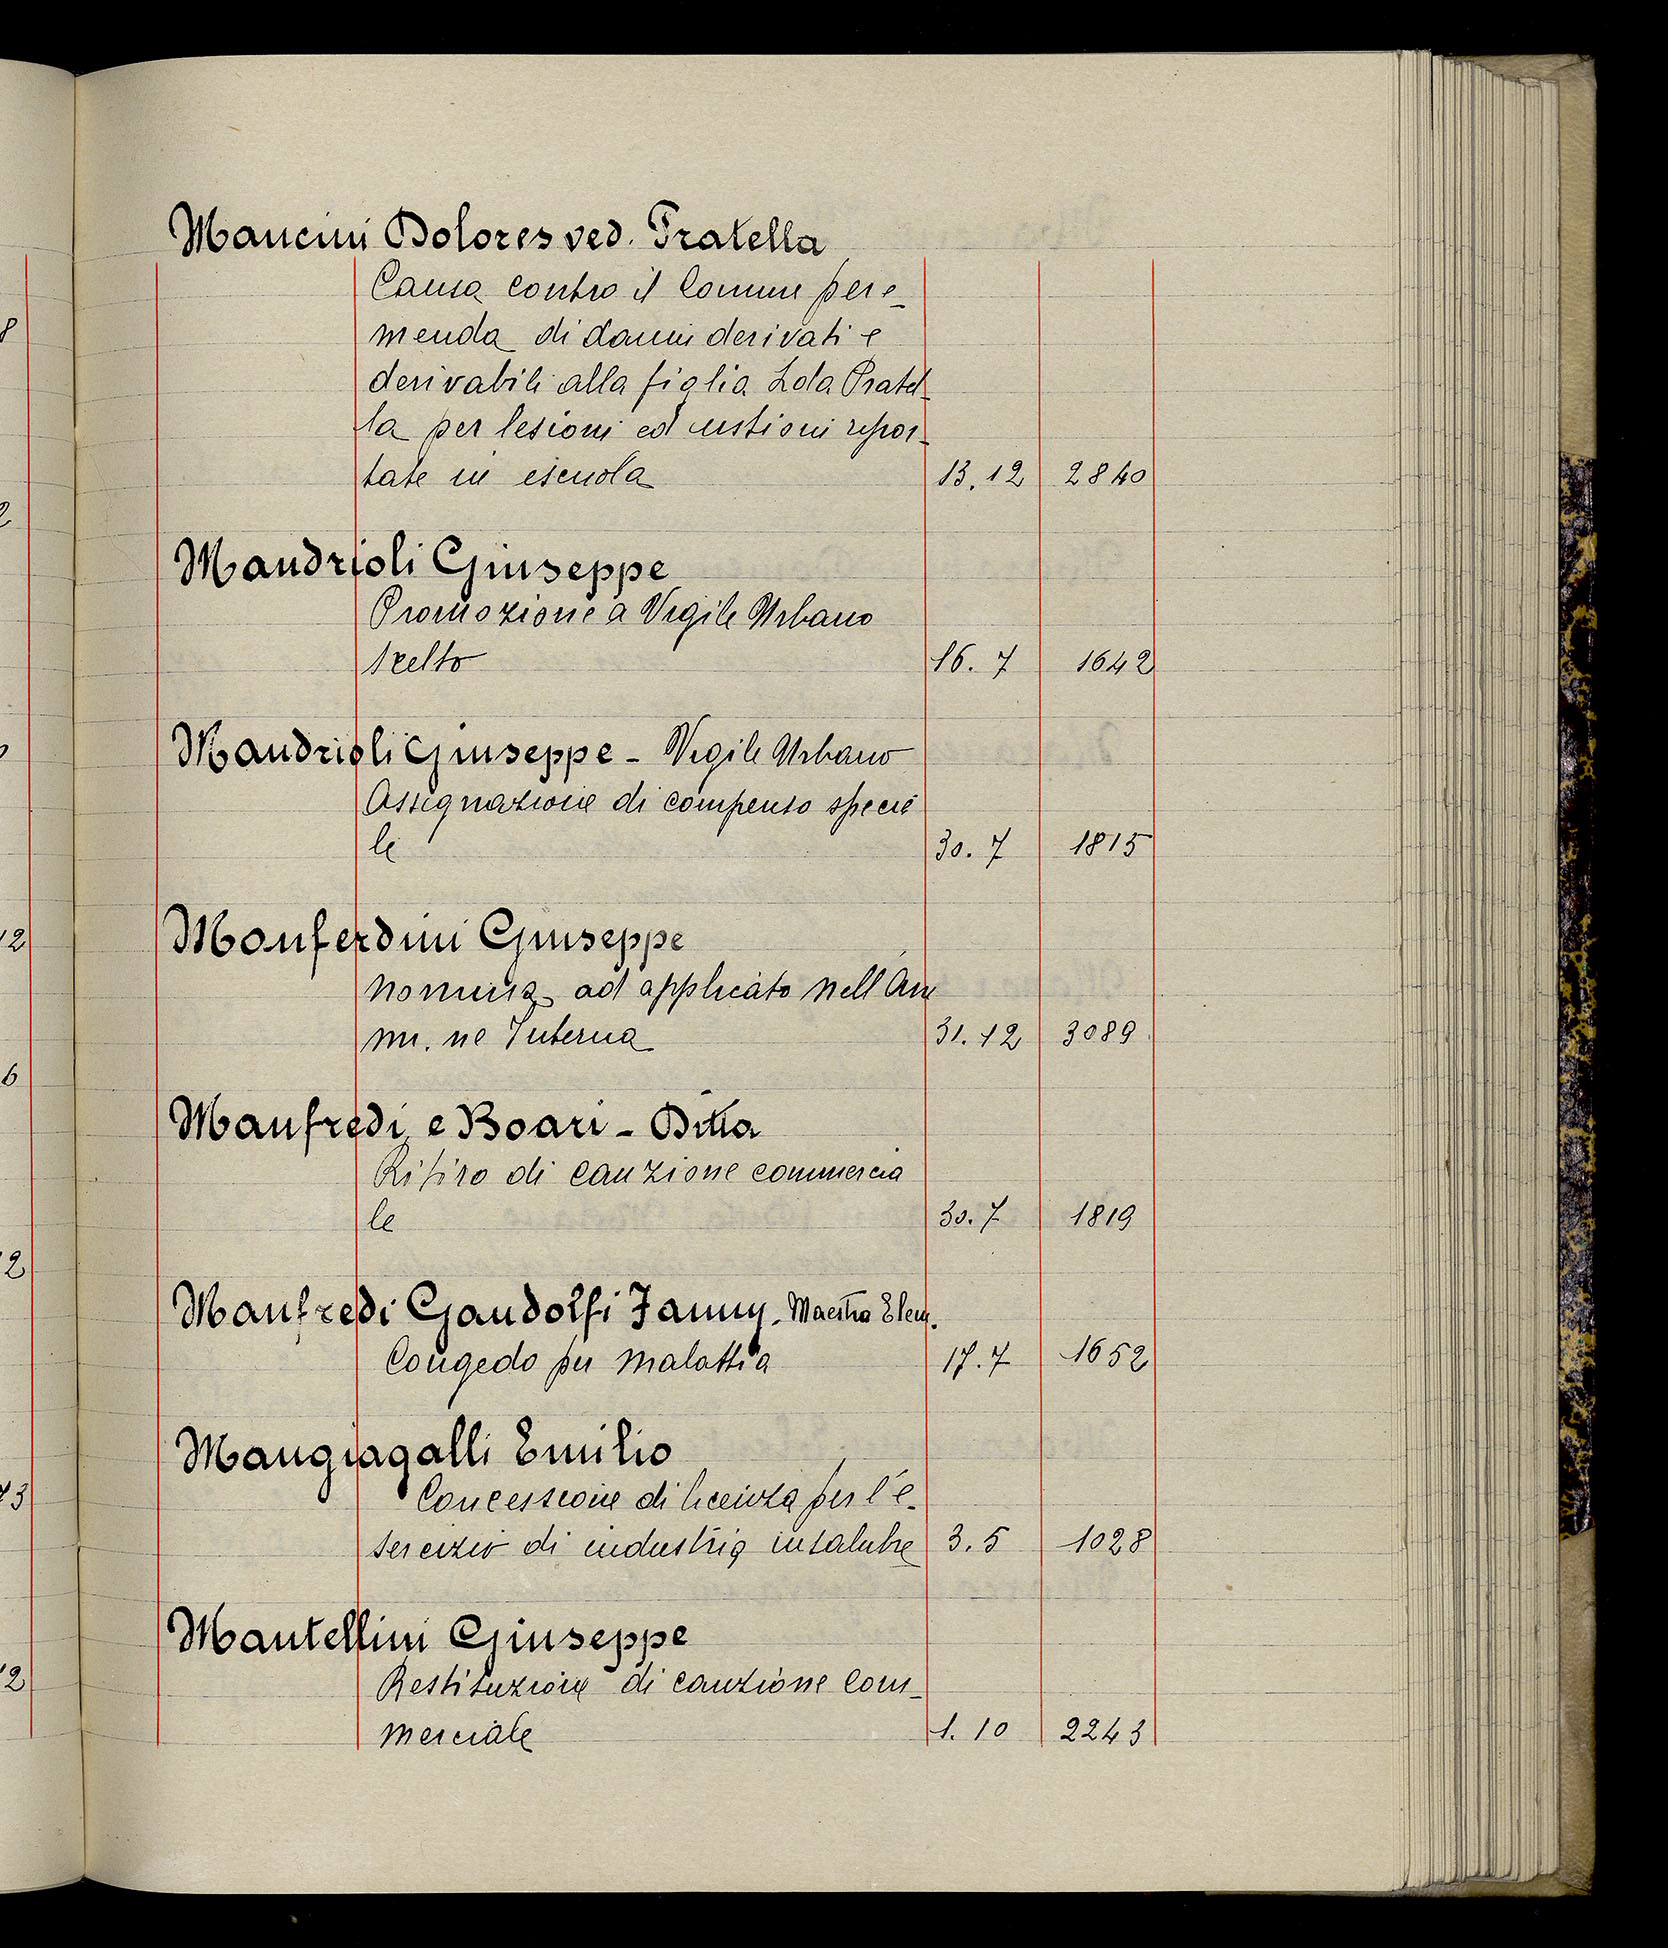 Mancini Dolores ved. Pratella
Causa contro il Comune per e-
menda di danni derivati e
derivabili alla figlia Lola Pratel-
la per lesioni ed ustioni ripor-
tate in iscuola 13.12 2840
Mandrioli Giuseppe
Promozione a Vigile Urbano
scelto 16.7 1642
Mandrioli Giuseppe - Vigile Urbano
Assegnazione di compenso specia
le 30.7 1815
Manferdini Giuseppe
Nomina ad applicato nell'Am
m.ne Interna 31.12 3089
Manfredi e Boari - Ditta
Ritiro di cauzione commercia
le 30.7 1819
Manfredi Gandolfi Fanny. Maestra Elem.
Congedo per malattia 17.7 1652
Mangiagalli Emilio
Concessione di licenza per l'e-
sercizio di industria insalubre 3.5 1028
Mantellini Giuseppe
Restituzione di cauzione com-
merciale 1.10 2243